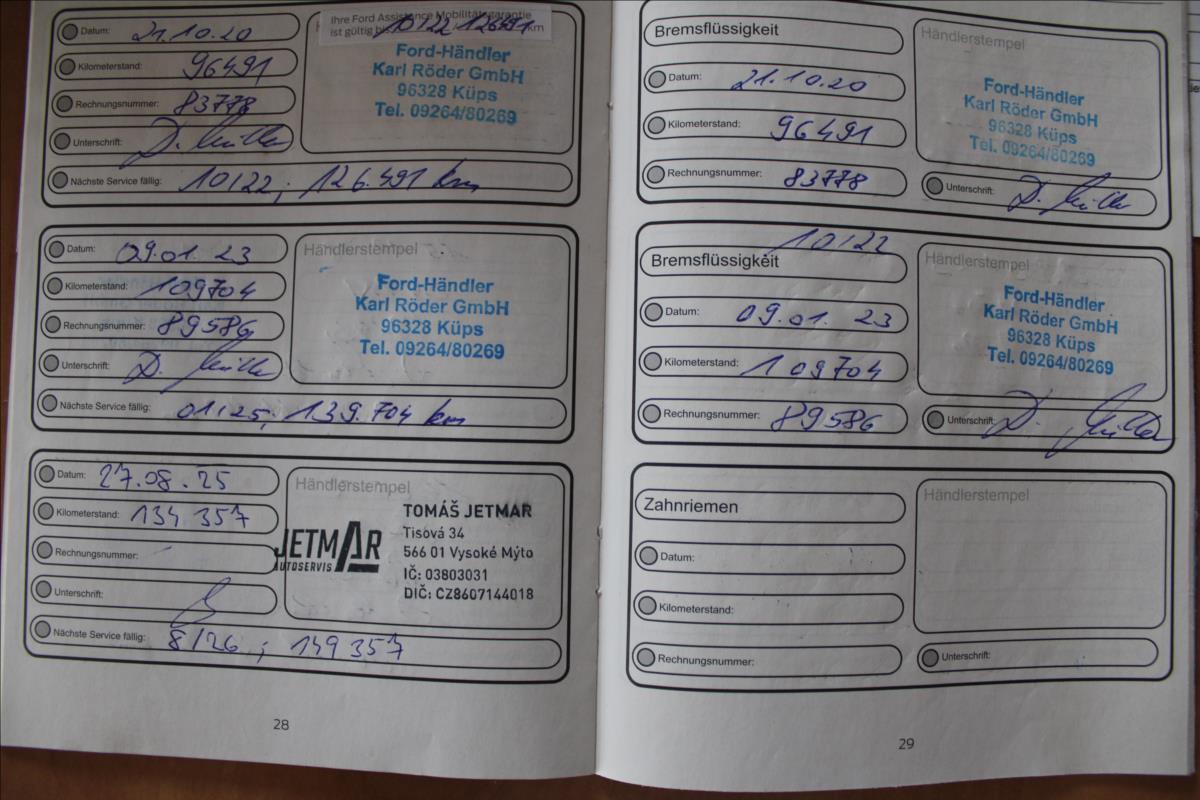 Datum: 21.10.20
Kilometerstand: 96491
Rechnungsnummer: 83778
Unterschrift: D. Müller
Nächste Service fällig: 10/22; 126.491 km
Ihre Ford Assistance Mobilitätsgarantie
ist gültig bis 10/22 126491 km
Ford-Händler
Karl Röder GmbH
96328 Küps
Tel. 09264/80269
Datum: 09.01.23
Kilometerstand: 109704
Rechnungsnummer: 89586
Unterschrift: D. Müller
Nächste Service fällig: 01/25; 139.704 km
Händlerstempel
Ford-Händler
Karl Röder GmbH
96328 Küps
Tel. 09264/80269
Datum: 27.08.25
Kilometerstand: 134 357
Rechnungsnummer:
Unterschrift:
Nächste Service fällig: 8/26; 149 357
Händlerstempel
JETMAR
AUTOSERVIS
TOMÁŠ JETMAR
Tisová 34
566 01 Vysoké Mýto
IČ: 03803031
DIČ: CZ8607144018
28
Bremsflüssigkeit
Datum: 21.10.20
Kilometerstand: 96491
Rechnungsnummer: 83778
Händlerstempel
Ford-Händler
Karl Röder GmbH
96328 Küps
Tel. 09264/80269
Unterschrift: D. Müller
10/22
Bremsflüssigkeit
Datum: 09.01.23
Kilometerstand: 109704
Rechnungsnummer: 89586
Händlerstempel
Ford-Händler
Karl Röder GmbH
96328 Küps
Tel. 09264/80269
Unterschrift: D. Müller
Zahnriemen
Datum:
Kilometerstand:
Rechnungsnummer:
Händlerstempel
Unterschrift:
29